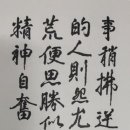 事稍拂逆
的人則怨尤
荒便思勝似
精神自奮